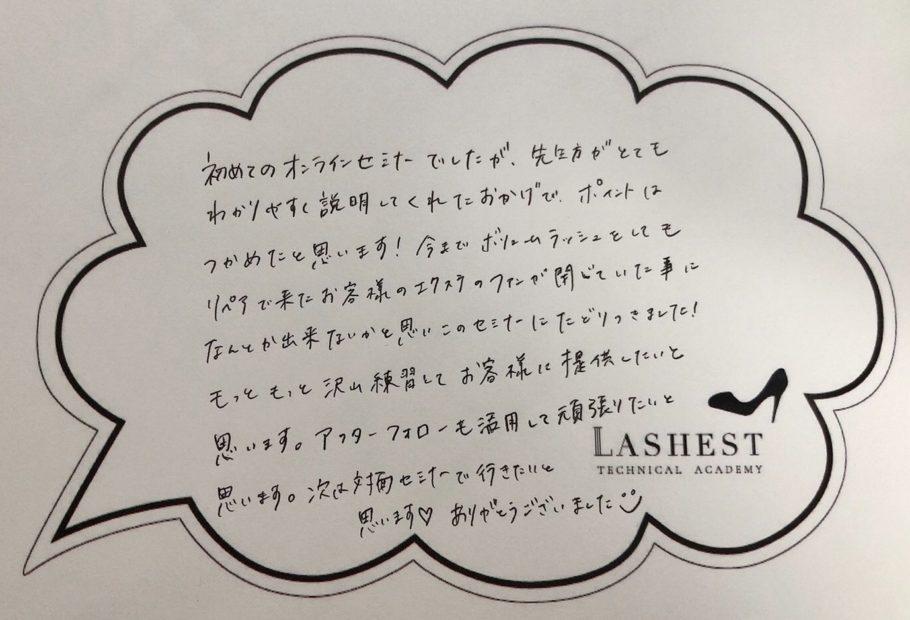 初めてのオンラインセミナーでしたが、先生方がとても
わかりやすく説明してくれたおかげで、ポイントは
つかめたと思います！今までボリュームラッシュをしても
リペアで来たお客様のエクステのファンが閉じていた事に
なんとか出来ないかと思いこのセミナーにたどりつきました！
もっともっと沢山練習してお客様に提供したいと
思います。アフターフォローも活用して頑張りたいと
思います。次は対面セミナーで行きたいと
思います♡ ありがとうございました
LASHEST
TECHNICAL ACADEMY